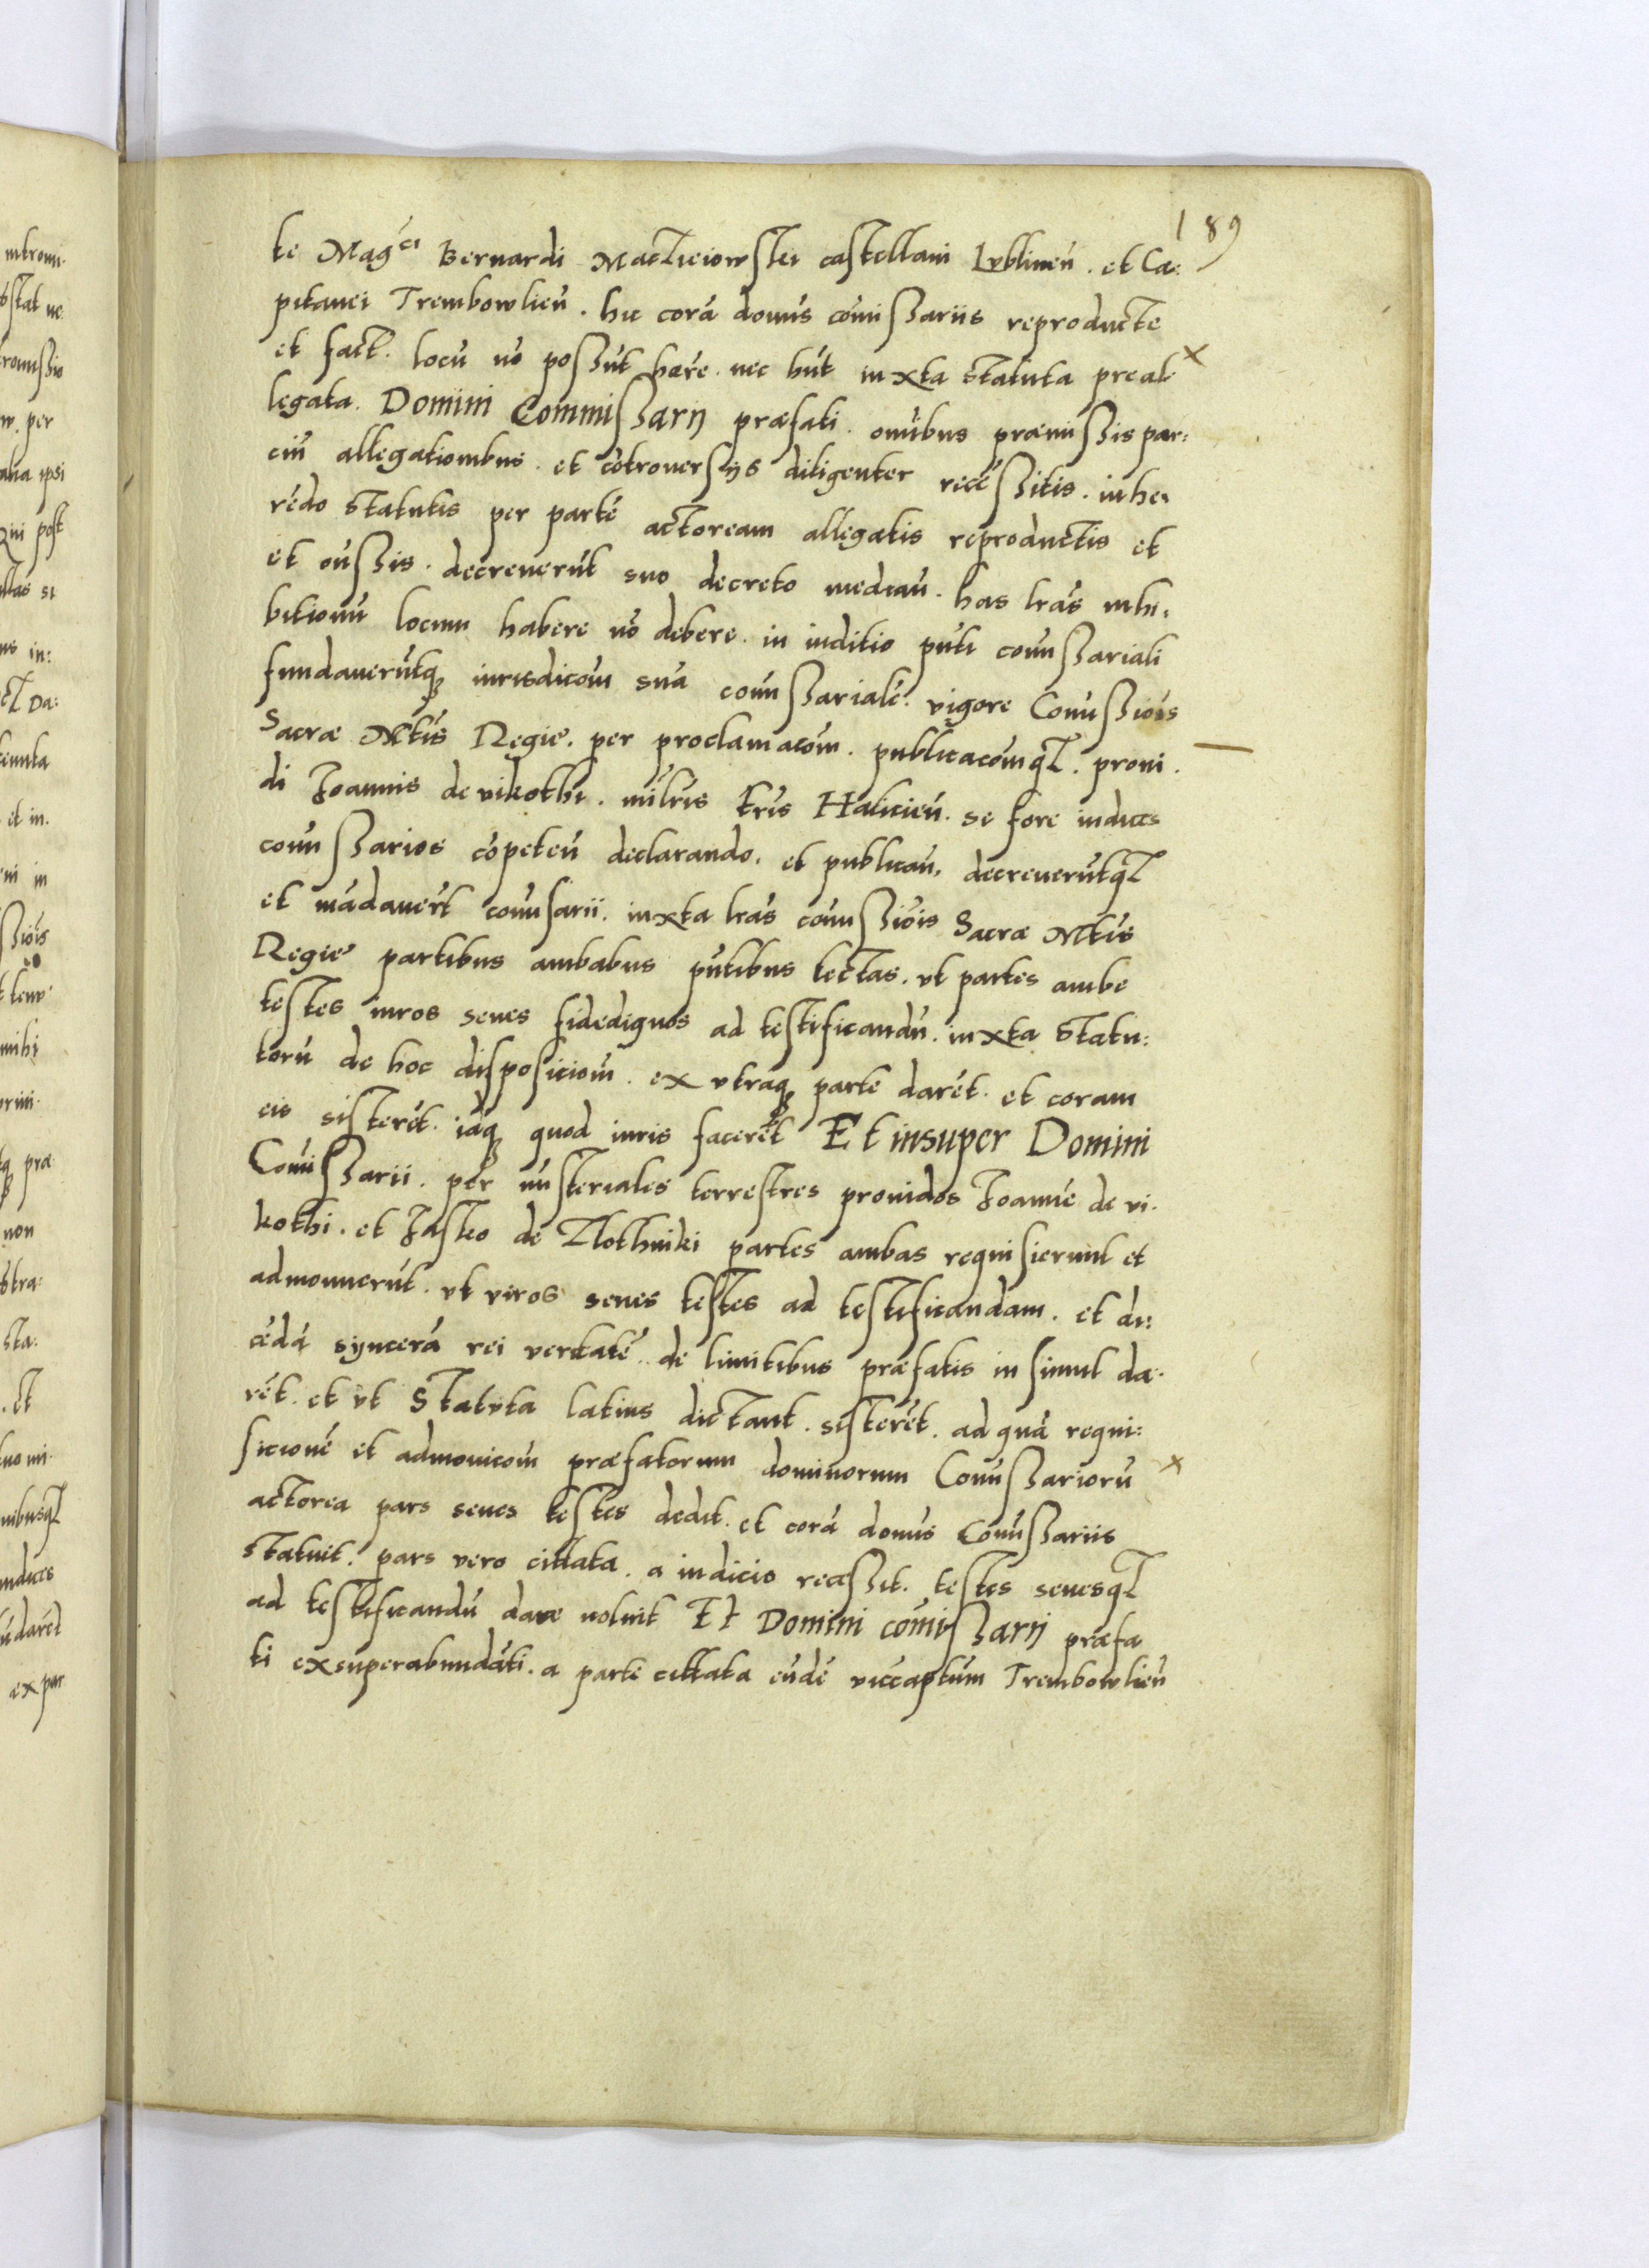 189
te Mag^ci Bernardi Mactieiowskei castellani Lvblineñ. et Ca:
pitanei Trembowlieñ. hic corã donis cõmissariis reproducte
et fact. locũ nõ possũt hãre. nec hñt iuxta statuta preal
legata. Domini Commissarij præfati. omibus præmissis par:
ciũ allegationibus. et cõtrouersijs diligenter recẽsitis. inhe-
rẽdo statutis per partẽ actoream allegatis reproductis et
et omissis. decreuerũt suo decreto mediañ. has lrãs inhi-
bitionũ locum habere nõ debere. in iuditio pñti comissariali
fundauerũtq; iurisdicoẽm suã comissarialẽ. vigore Comissiõis
Sacræ Mtis Regie. per proclamacõm. publicacõmq. proui.
di Joannis de vikothi. milris tris Haliciẽn. se fore iudices
comissarios cõpetẽn declarando. et publicañ. decreuerũtq
et mãdauerũt comisarii. iuxta lrãs comissiõis Sacræ Mtis
Regie partibus ambabus pñtibus lectas. vt partes ambe
testes iuros senes fidedignos ad testificandũ. iuxta statu:
torũ de hoc disposiciõm. ex vtraq; parte darẽt. et coram
eis sisterẽt. idq; quod iuris facerẽt Et insuper Domini
Comissarii. per misteriales terrestres prouidos Joannẽ de vi.
kothi. et Jasko de Zlothniki partes ambas requisierunt et
admonuerũt. vt viros senes testes ad testificandam. et di:
cẽdã synceră rei veritatẽ. de limitibus præfatis in simul da.
rẽt. et vt Statvta latius dictant. sisterẽt. ad quã requi:
sicionẽ et admonicoẽm præfatorum dominorum Comissariorũ
actorea pars senes testes dedit. et corã donis Comissariis
statuit. pars vero citata. a iudicio recessit. testes senesq
ad testificandũ dare noluit Et Domini comissarij præfa
ti exsuperabundãti. a parte cittata eũdẽ vicecaptũm Trembowlieñ